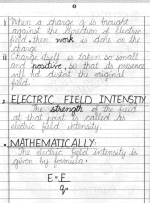 When a charge q is brought
against the direction of electric
field, then work is done on the
charge.
ii Charge itself is taken so small
and positive, so that its presence
will not distort the original
field.
2. ELECTRIC FIELD INTENSITY
The strength of the field
at that point is called as
electric field intensity.
• MATHEMATICALLY:
The electric field intensity is
given by formula:
E = F
q₀